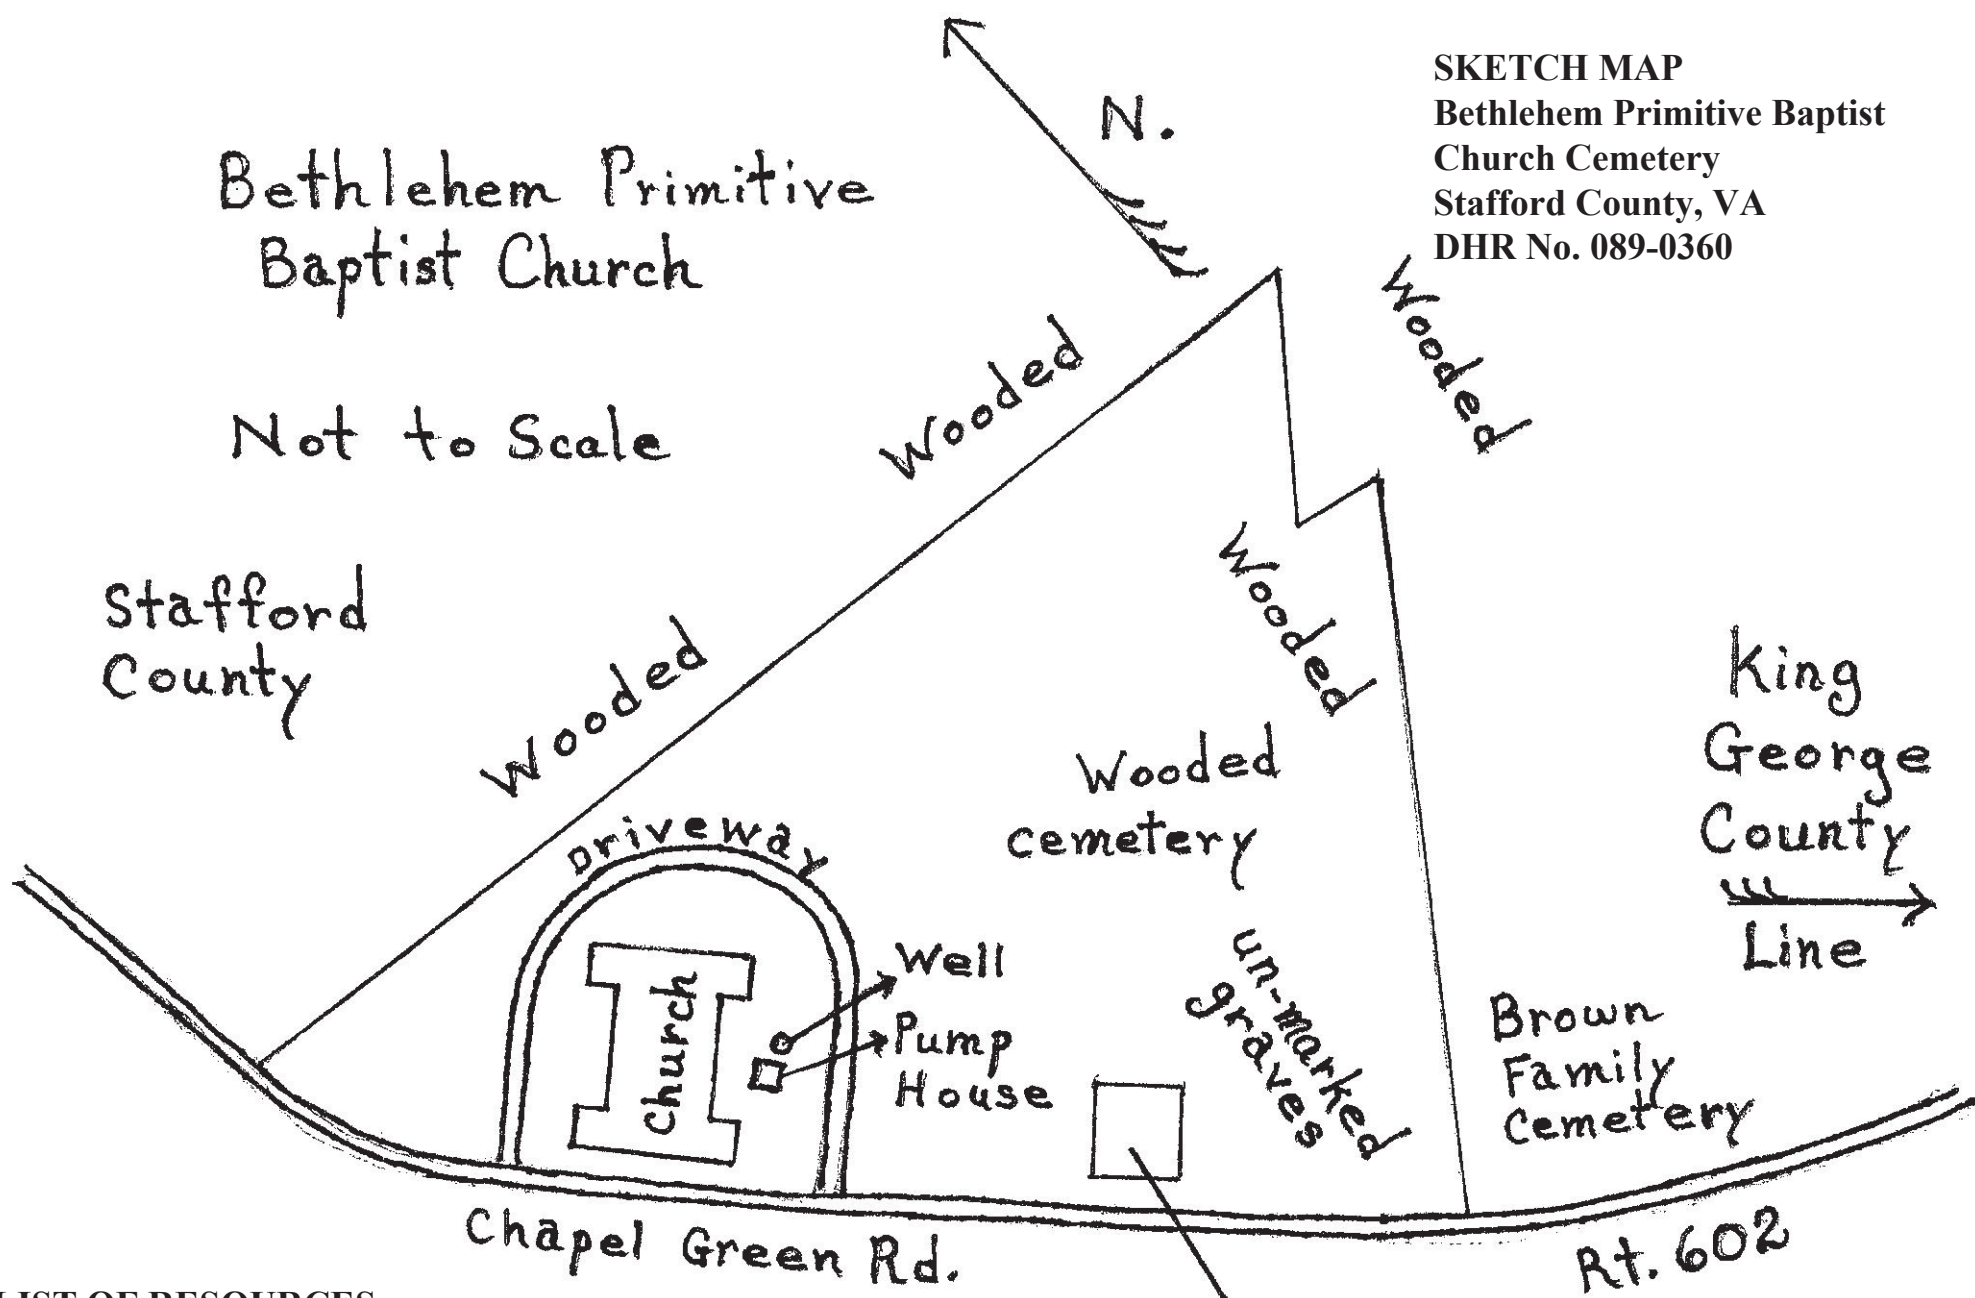 N.
SKETCH MAP
Bethlehem Primitive Baptist
Church Cemetery
Stafford County, VA
DHR No. 089-0360
Bethlehem Primitive
Baptist Church
Not to Scale
Stafford
County
Wooded
Wooded
Wooded
Wooded
Wooded
cemetery
King
George
County
Line
Driveway
Church
Well
Pump
House
un-marked
graves
Brown
Family
Cemetery
Chapel Green Rd.
Rt. 602
LIST OF RESOURCES